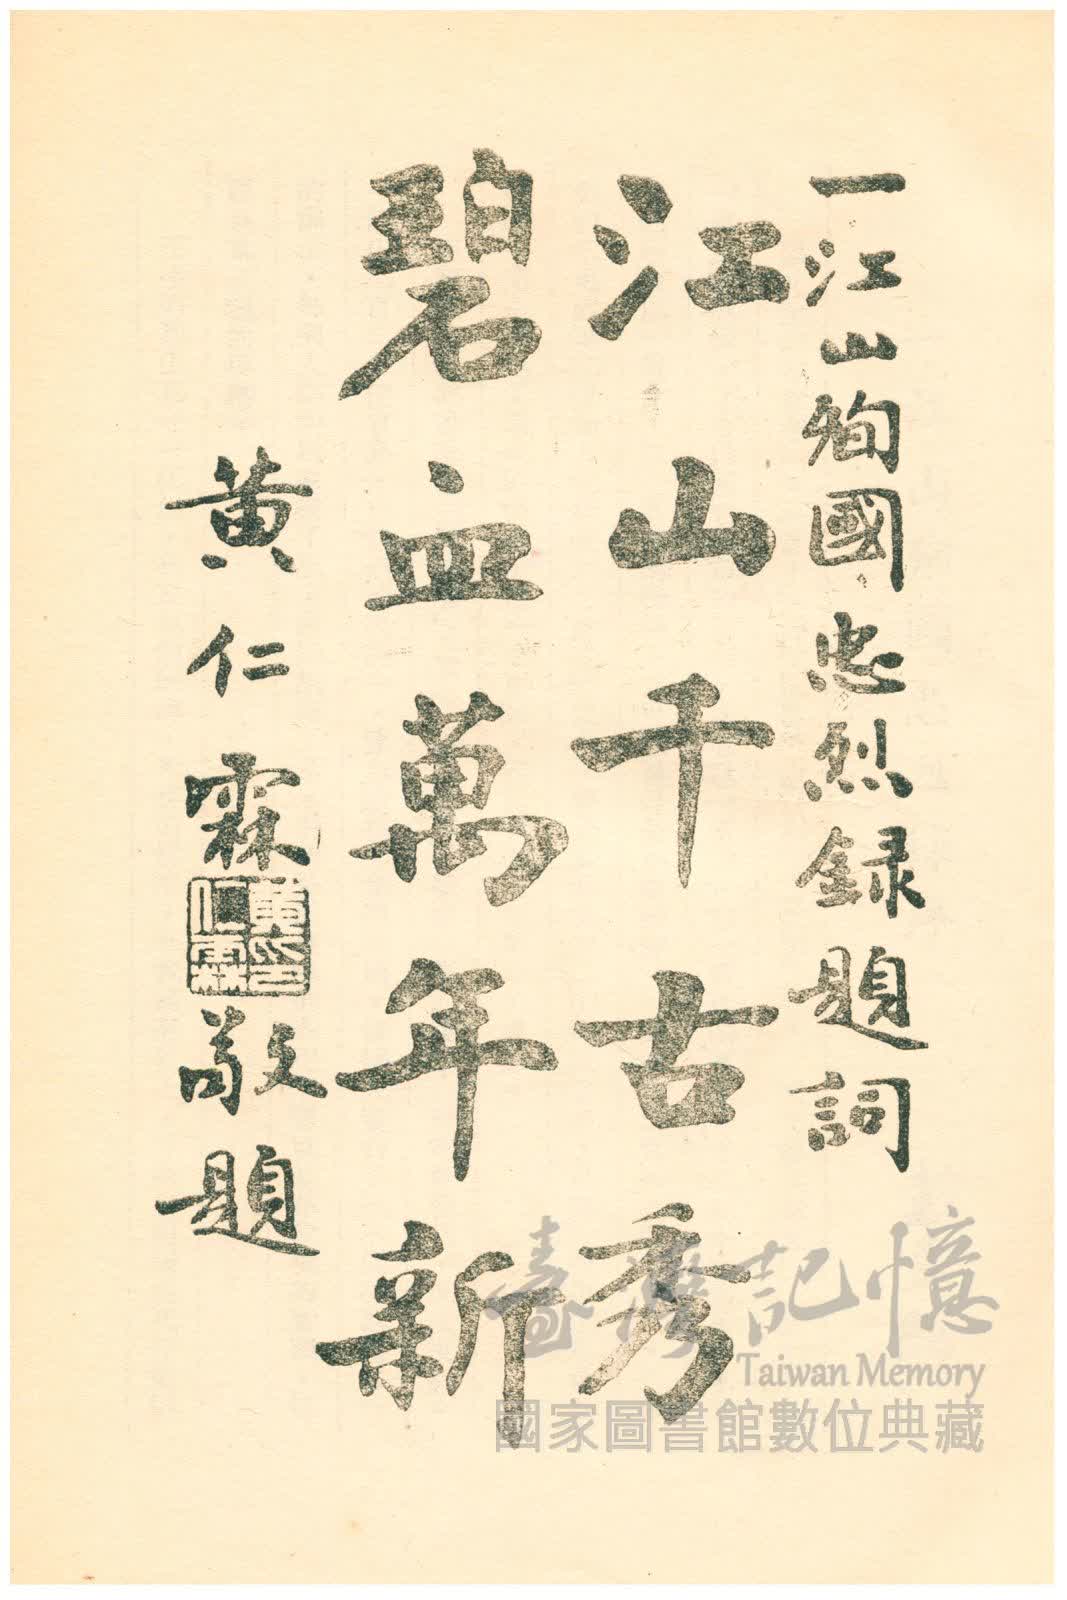 一江山殉國忠烈録題詞
江山千古秀
碧血萬年新
黄仁霖敬題
黃仁霖印
臺灣記憶
Taiwan Memory
國家圖書館數位典藏